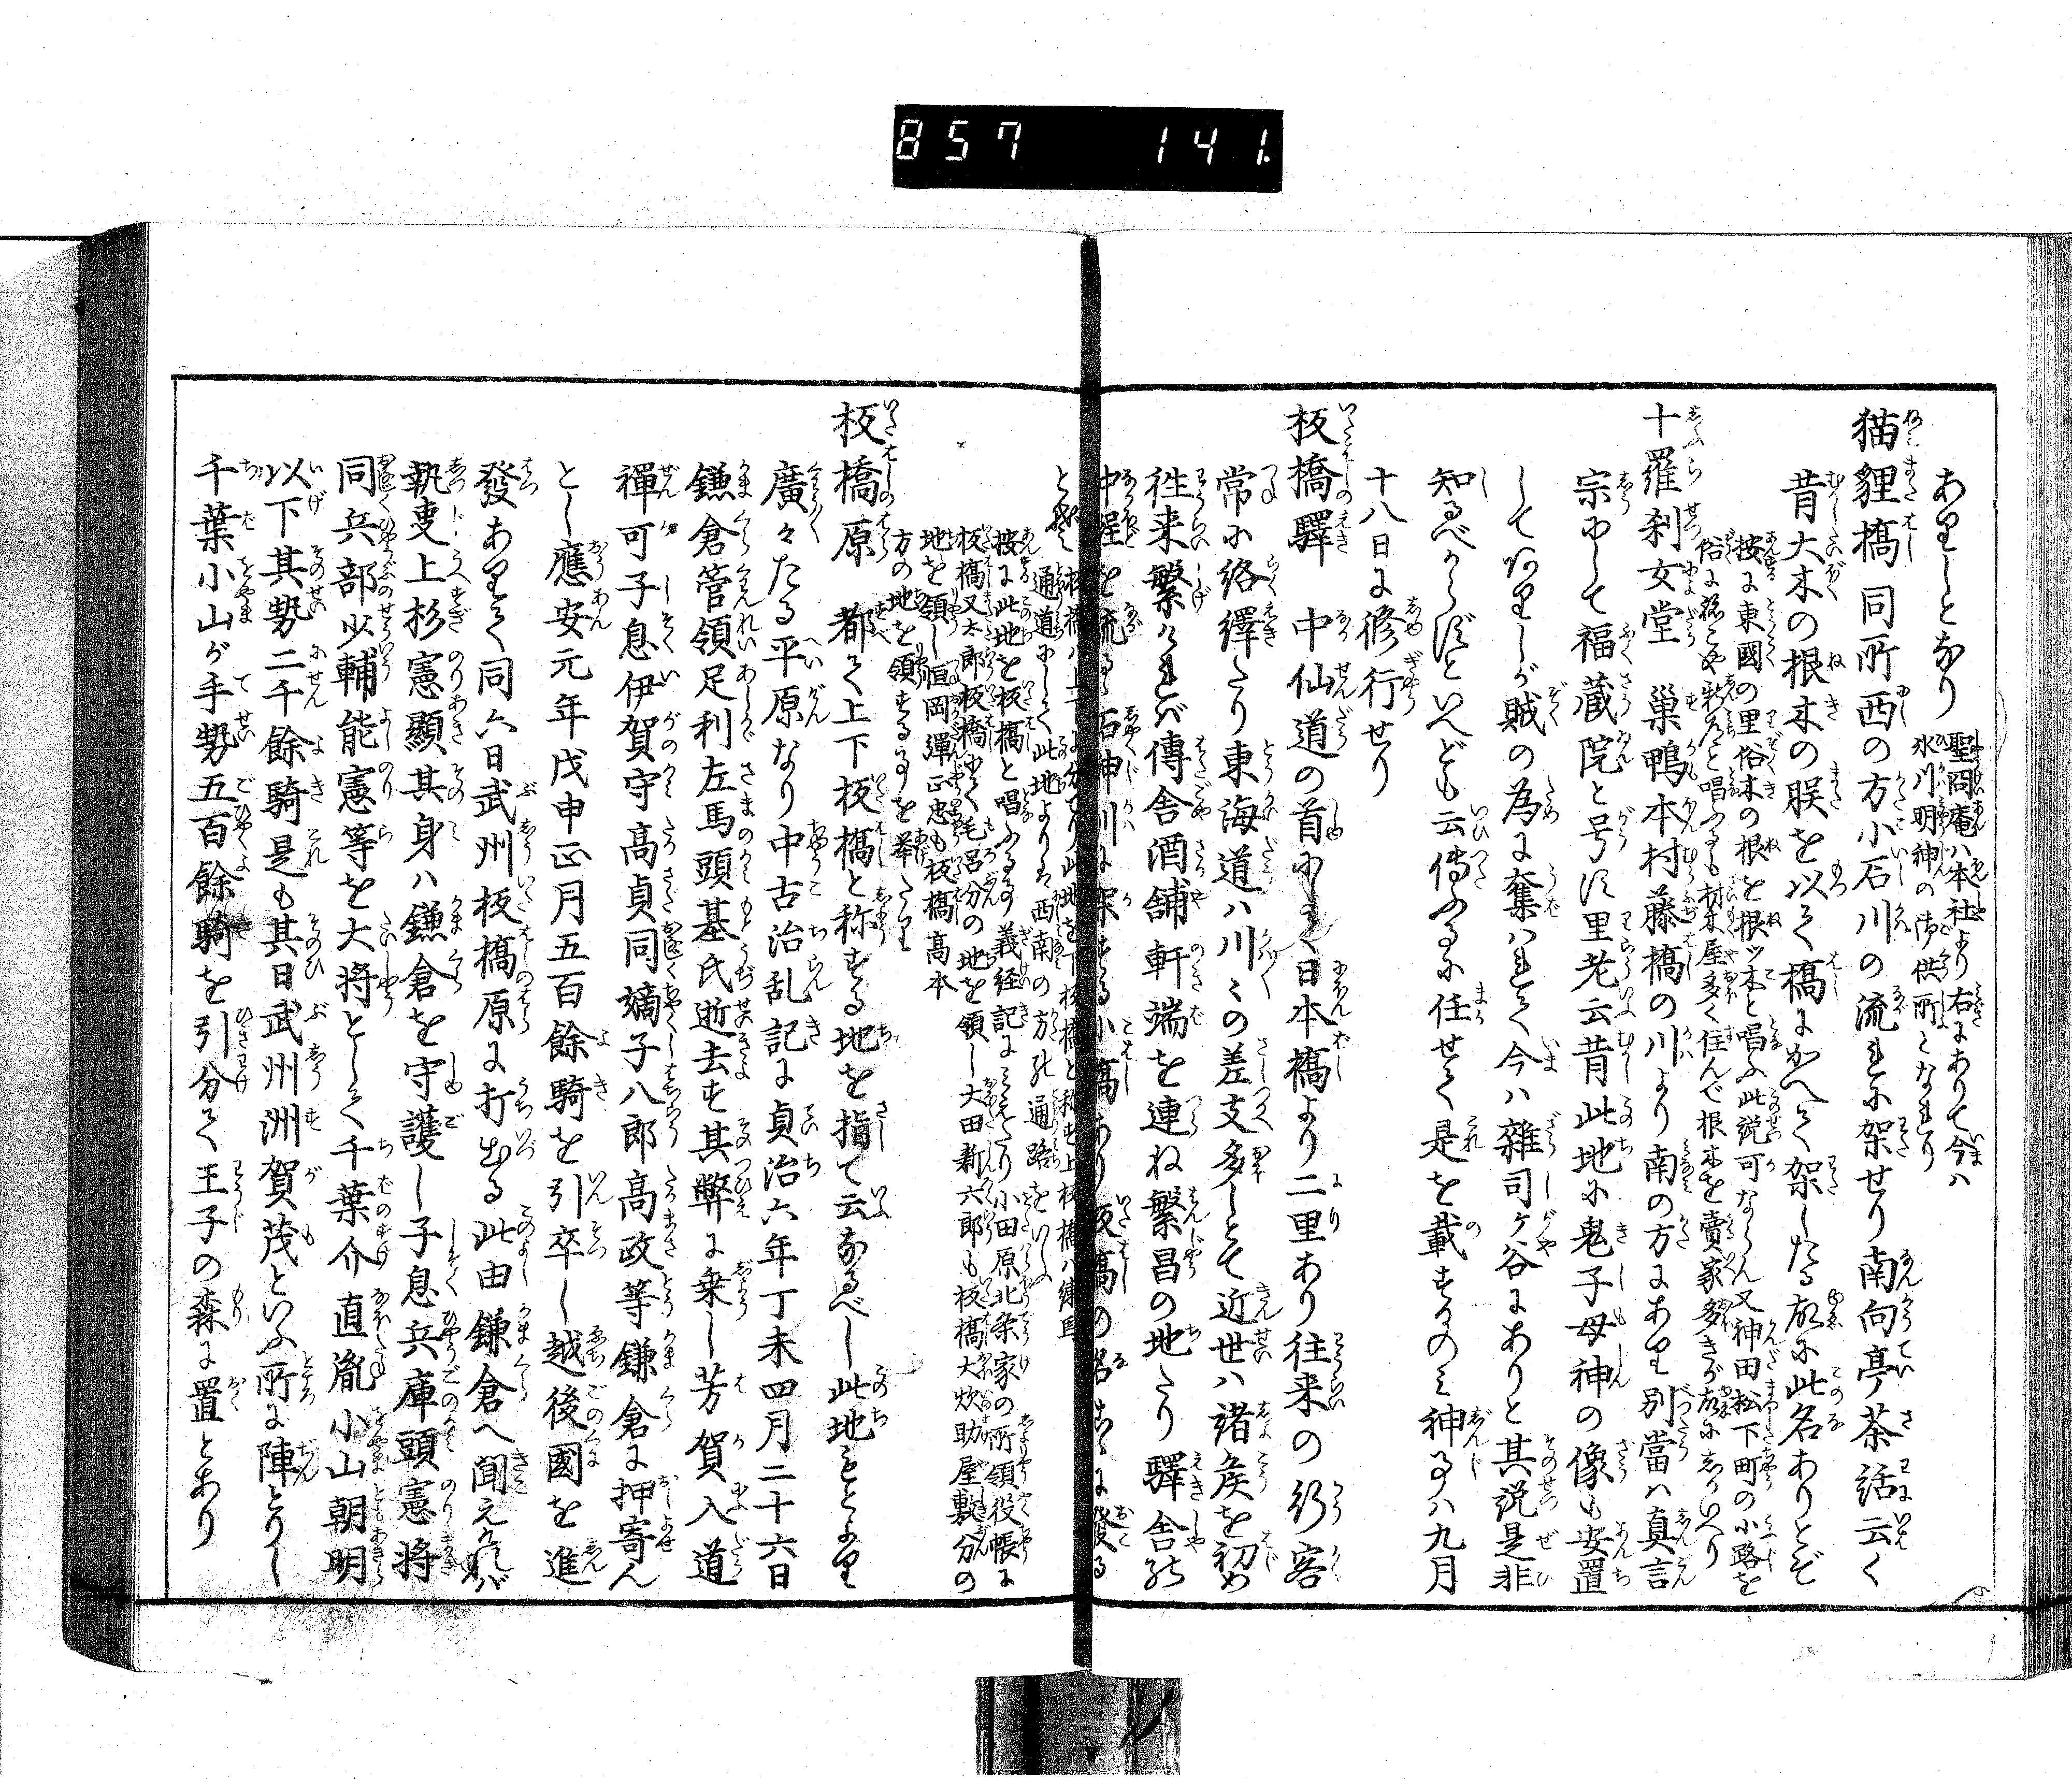 857 141.
ありしとなり 聖問庵ハ本社より右にありて今ハ
氷川明神の御供所となれり
猫貍橋 同所西の方小石川の流れに架せり南向亭茶話云く
昔大木の根木の朘を以て橋にかへて架したる故に此名ありとぞ
按に東國の里俗木の根を根ッ木と唱ふ此説可ならん又神田松下町の小路を
俗に
唱ふるも材木屋多く住んで根木を賣家多きが故にしかいへり
十羅刹女堂 巣鴨本村藤橋の川より南の方にあり別當ハ真言
宗にして福蔵院と号す里老云昔此地に鬼子母神の像も安置
してありしが賊の為に奪ハれて今ハ雜司ケ谷にありと其説是非
知るべからずといへども云傳ふるに任せて是を載するのミ神事ハ九月
十八日に修行せり
板橋驛 中仙道の首にして日本橋より二里あり往来の行客
常に絡繹たり東海道ハ川々の差支多しとて近世ハ諸矦を初め
徃来繁けれバ傳舎酒舗軒端を連ね繁昌の地たり驛舎の
中程を流るゝ石神川に架する小橋あり板橋の名こゝに發る
とぞ 板橋ハ上下に分てり此地を下板橋と称す上板橋ハ練馬
通道にして此地よりハ西南の方の通路をいふ
按に此地を板橋と唱ふる事義経記にみえたり小田原北条家の所領役帳に
板橋又太郎板橋にて毛呂分の地を領し大田新六郎も板橋大炊助屋敷分の
地を領し恒岡彈正忠も板橋髙本
方の地を領する事を舉たり
板橋原 都て上下板橋と称する地を指て云なるべし此地もとより
廣々たる平原なり中古治乱記に貞治六年丁未四月二十六日
鎌倉管領足利左馬頭基氏逝去す其弊に乗し芳賀入道
禪可子息伊賀守髙貞同嫡子八郎髙政等鎌倉に押寄ん
とし應安元年戊申正月五百餘騎を引卒し越後國を進
發ありて同六日武州板橋原に打出る此由鎌倉へ聞えけれバ
執事上杉憲顯其身ハ鎌倉を守護し子息兵庫頭憲将
同兵部少輔能憲等を大将として千葉介直胤小山朝明
以下其勢二千餘騎是も其日武州洲賀茂といふ所に陣とりし
千葉小山が手勢五百餘騎を引分て王子の森に置とあり